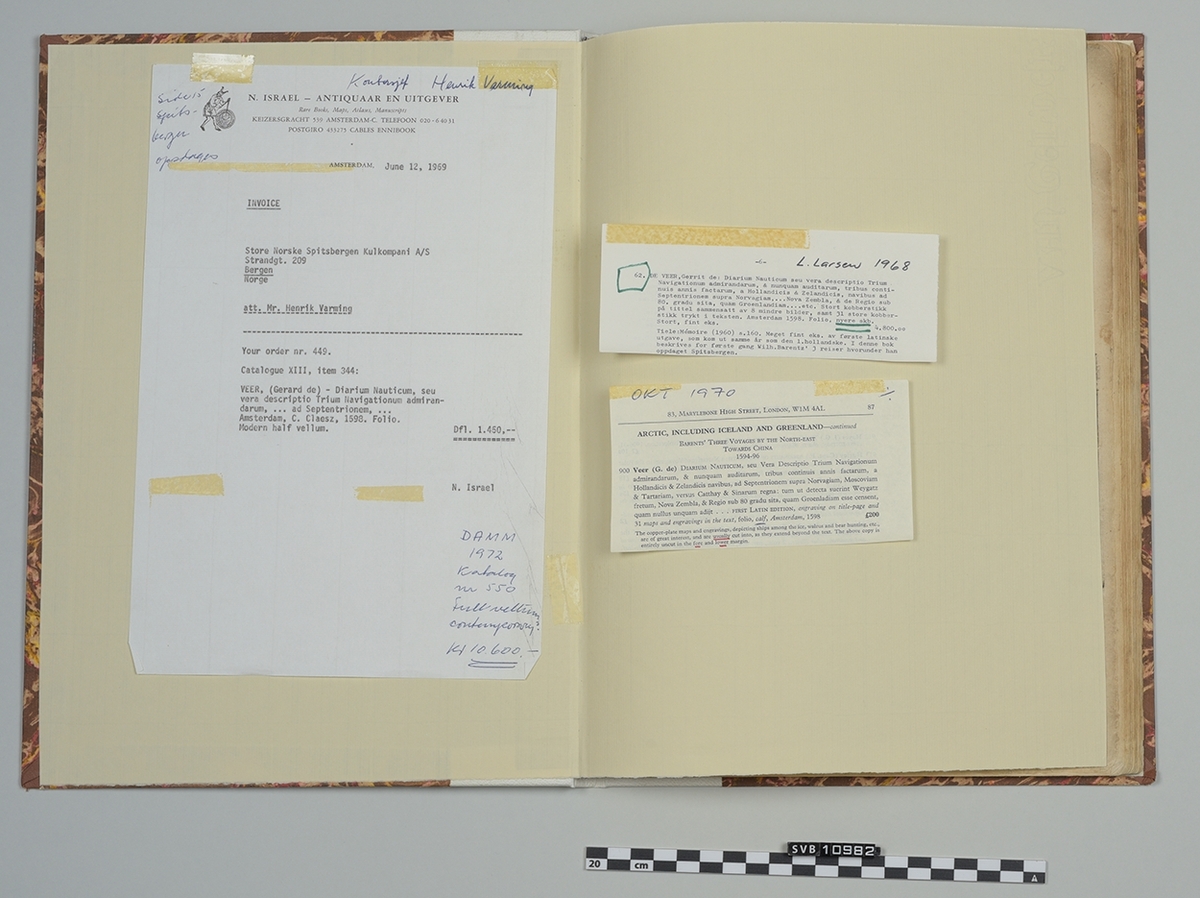 Kontorsjef Henrik Varming
Side 15
Spits-
bergen
oppdages
N. ISRAEL — ANTIQUAAR EN UITGEVER
Rare Books, Maps, Atlases, Manuscripts
KEIZERSGRACHT 539 AMSTERDAM-C. TELEFOON 020 - 6 40 31
POSTGIRO 453275 CABLES ENNIBOOK
AMSTERDAM, June 12, 1969
INVOICE
Store Norske Spitsbergen Kulkompani A/S
Strandgt. 209
Bergen
Norge
att. Mr. Henrik Varming
Your order nr. 449.
Catalogue XIII, item 344:
VEER, (Gerard de) - Diarium Nauticum, seu
vera descriptio Trium Navigationum admiran-
darum, ... ad Septentrionem, ...
Amsterdam, C. Claesz, 1598. Folio.
Modern half vellum. Dfl. 1.450,--
N. Israel
DAMM
1972
Katalog
nr 550
Full vellum
contemporary.
Kr 10.600.—
L. Larsen 1968
62. DE VEER,Gerrit de: Diarium Nauticum seu vera descriptio Trium
Navigationum admirandarum, & nunquam auditarum, tribus conti-
nuis annis factarum, a Hollandicis & Zelandicis, navibus ad
Septentrionem supra Norvagiam,...Nova Zembla, & de Regio sub
80. gradu sita, quam Groenlandiam,...etc. Stort kobberstikk
på tittel sammensatt av 8 mindre bilder, samt 31 store kobber-
stikk trykt i teksten. Amsterdam 1598. Folio, nyere skb.
Stort, fint eks. 4,800,00
Tiele:Mémoire (1960) s.160. Meget fint eks. av første latinske
utgave, som kom ut samme år som den 1.hollandske. I denne bok
beskrives for første gang Wilh.Barentz' 3 reiser hvorunder han
oppdaget Spitsbergen.
OKT 1970
83, MARYLEBONE HIGH STREET, LONDON, W1M 4AL 87
ARCTIC, INCLUDING ICELAND AND GREENLAND—continued
BARENTS' THREE VOYAGES BY THE NORTH-EAST
TOWARDS CHINA
1594-96
900 Veer (G. de) DIARIUM NAUTICUM, seu Vera Descriptio Trium Navigationum
admirandarum, & nunquam auditarum, tribus continuis annis factarum, a
Hollandicis & Zelandicis navibus, ad Septentrionem supra Norvagiam, Moscoviam
& Tartariam, versus Catthay & Sinarum regna: tum ut detecta fuerint Weygatz
fretum, Nova Zembla, & Regio sub 80 gradu sita, quam Groenladiam esse censent,
quam nullus unquam adijt . . . FIRST LATIN EDITION, engraving on title-page and
31 maps and engravings in the text, folio, calf, Amsterdam, 1598 £200
The copper-plate maps and engravings, depicting ships among the ice, walrus and bear hunting, etc.,
are of great interest, and are usually cut into, as they extend beyond the text. The above copy is
entirely uncut in the fore and lower margin.
SVB 10982
20 cm